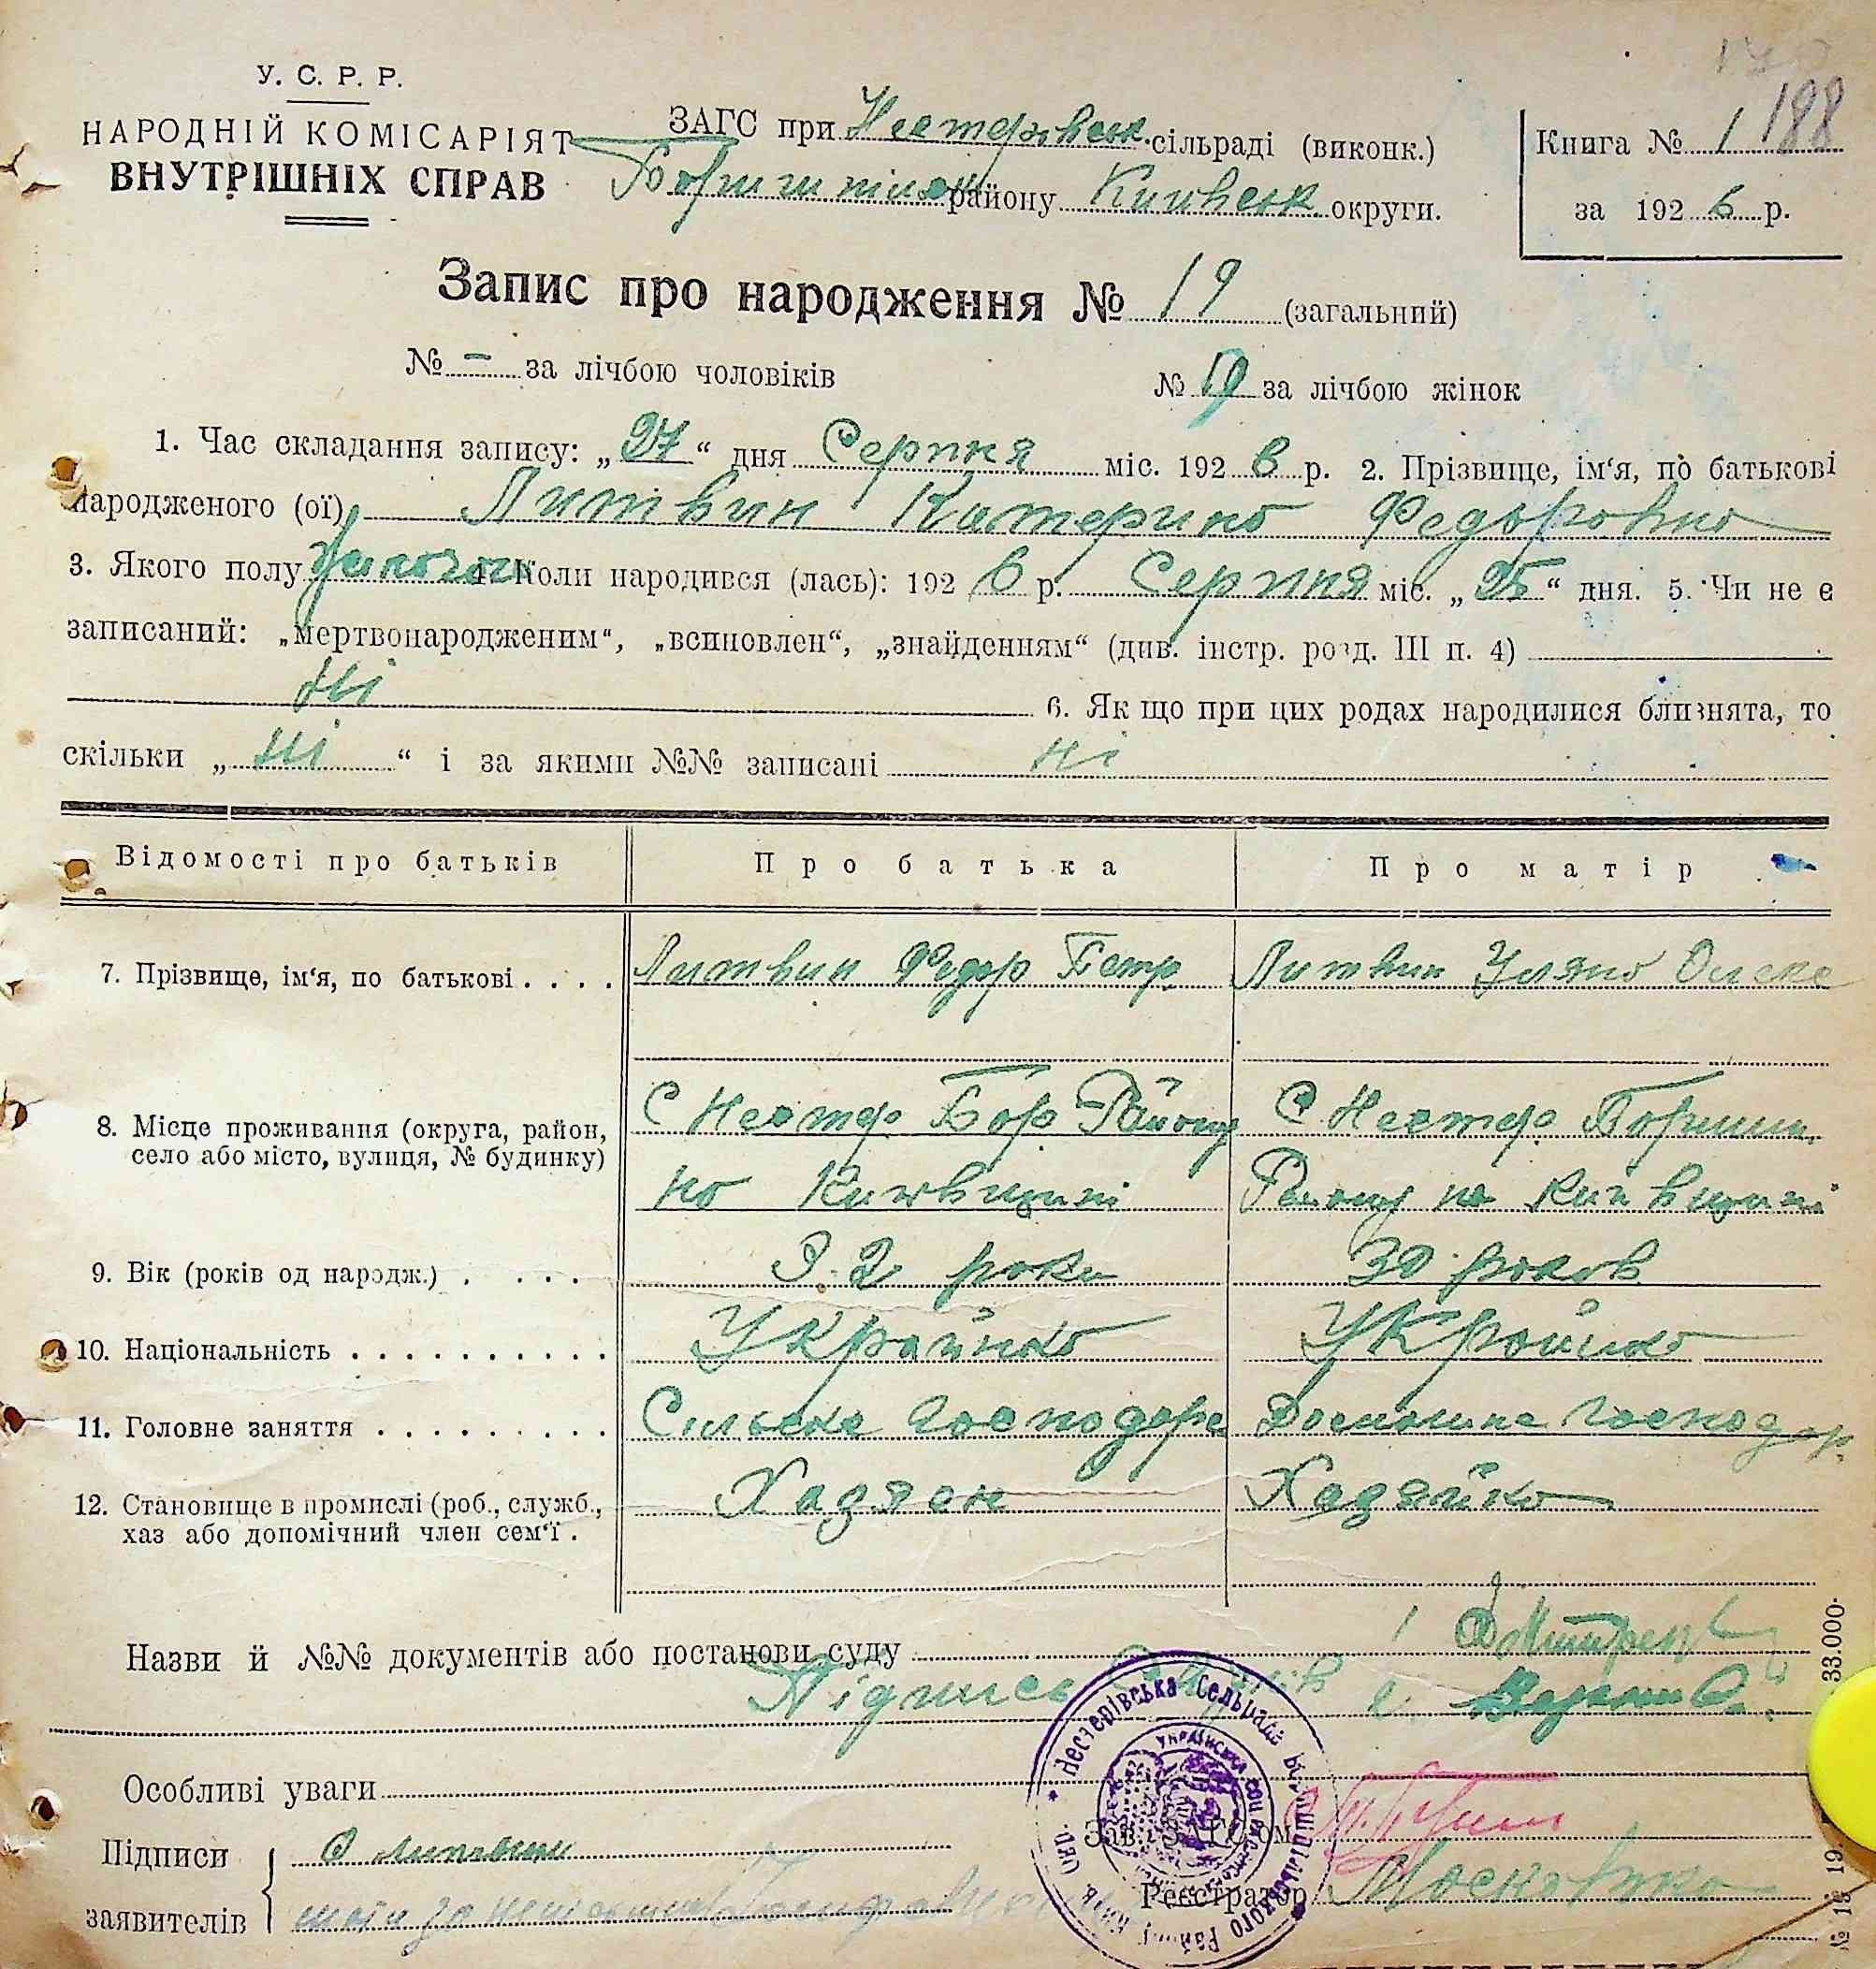 188
У. С. Р. Р.
НАРОДНІЙ КОМІСАРІЯТ
ВНУТРІШНІХ СПРАВ
ЗАГС при Нестерівськ. сільраді (виконк.)
району Київськ округи.
Книга № 1
за 1926 р.
Запис про народження № 19 (загальний)
№ - за лічбою чоловіків
№ за лічбою жінок
1. Час складання запису: „27“ дня Серпня міс. 1926 р. 2. Прізвище, ім‘я, по батькові
народженого (ої) Литвин Катерина Федоровна
3. Якого полу 4. Коли народився (лась): 1926 р. Серпня міс. „25“ дня. 5. Чи не є
записаний: „мертвонародженим“, „всиновлен“, „знайденням“ (див. інстр. розд. III п. 4)
Ні
6. Як що при цих родах народилися близнята, то
скільки „ні“ і за якими №№ записані ні
Відомості про батьків
Про батька
Про матір
7. Прізвище, ім‘я, по батькові . . . .
Литвин Федор Петр
Литвин Уляна Олекс
8. Місце проживання (округа, район,
село або місто, вулиця, № будинку)
С Нестер. Бор Району
на Київщині
С Нестер. Боришп.
Району на Київщині
9. Вік (років од народж.) . . . .
32 роки
30 роков
10. Національність . . . . . . . . . .
Украйнка
Украйнка
11. Головне заняття . . . . . . . . .
Сильске Господарс
Домашне Господар.
12. Становище в промислі (роб., служб.,
хаз або допомічний член сем‘ї .
Хазяєн
Хазяйка
Назви й №№ документів або постанови суду
1 Дмитрен
Підпись
2.
Особливі уваги
Підписи
заявителів
Литвин
Зав. ЗАГС‘ом
Реєстратор
Нестерівська Сельрада
Района Київ. Окр.
УКРАЇНСЬКА СОЦ.
33.000.
№ 15